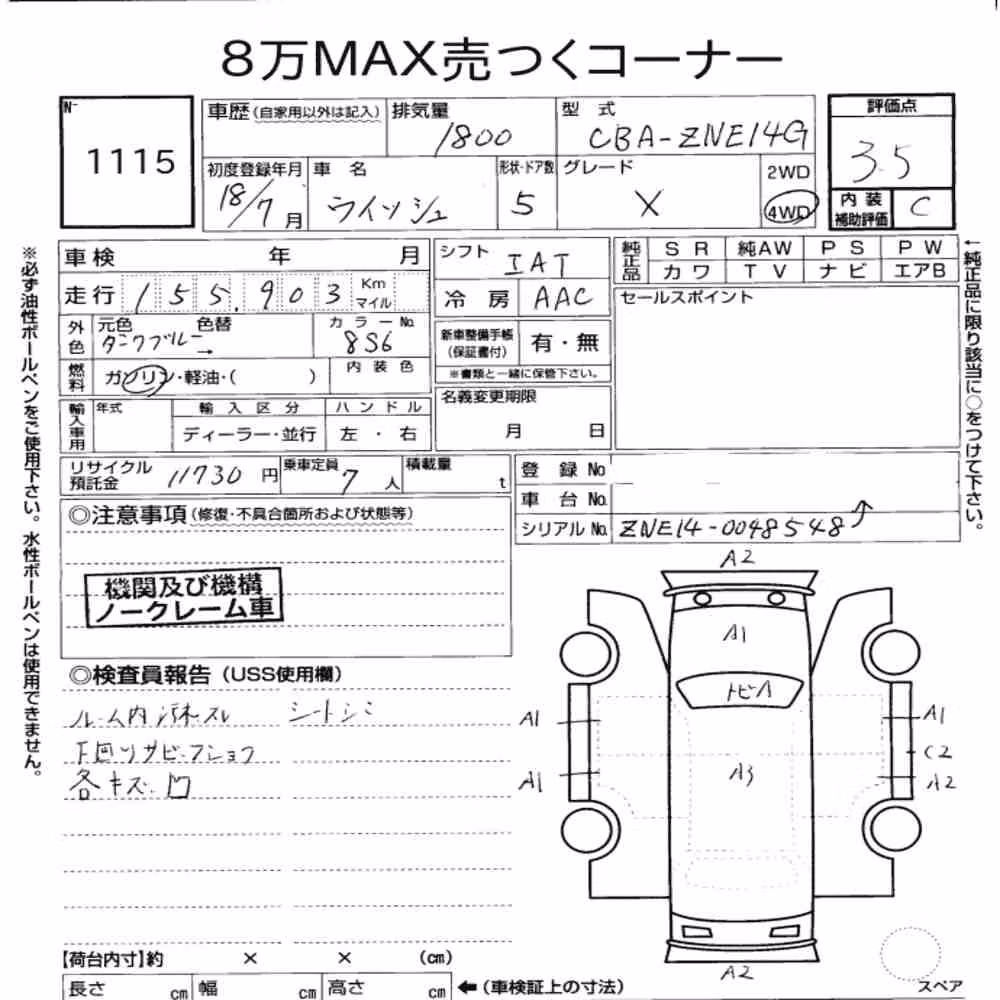 8万MAX売つくコーナー
N-
1115
車歴(自家用以外は記入)
排気量
1800
型 式
CBA-ZNE14G
評価点
3.5
内装
補助評価
C
初度登録年月
18/7月
車 名
ウイッシュ
形状・ドア数
5
グレード
X
2WD
4WD
車検 年 月
走行 155,903 Km
マイル
外色
元色 色替
ダークブルー→
カラーNo.
8S6
燃料
ガソリン・軽油・( )
内装色
輸入車用
年式
輸入区分
ディーラー・並行
ハンドル
左・右
シフト
IAT
冷房
AAC
新車整備手帳
(保証書付)
有・無
※書類と一緒に保管下さい。
名義変更期限
月 日
純正品
SR 純AW PS PW
カワ TV ナビ エアB
セールスポイント
リサイクル
預託金
11730円
乗車定員
7人
積載量
t
登録No
車台No.
シリアルNo.
ZNE14-0048548
◎注意事項(修復・不具合箇所および状態等)
機関及び機構
ノークレーム車
◎検査員報告(USS使用欄)
ルーム内汚れスレ シートシミ
下回りサビ・フショク
各キズ・凹
A2
A1
トビA
A3
A1
A1
A1
C2
A2
A2
スペア
【荷台内寸】約 × × (cm)
長さ cm 幅 cm 高さ cm
←(車検証上の寸法)
※必ず油性ボールペンをご使用下さい。水性ボールペンは使用できません。
←純正品に限り該当に○をつけて下さい。